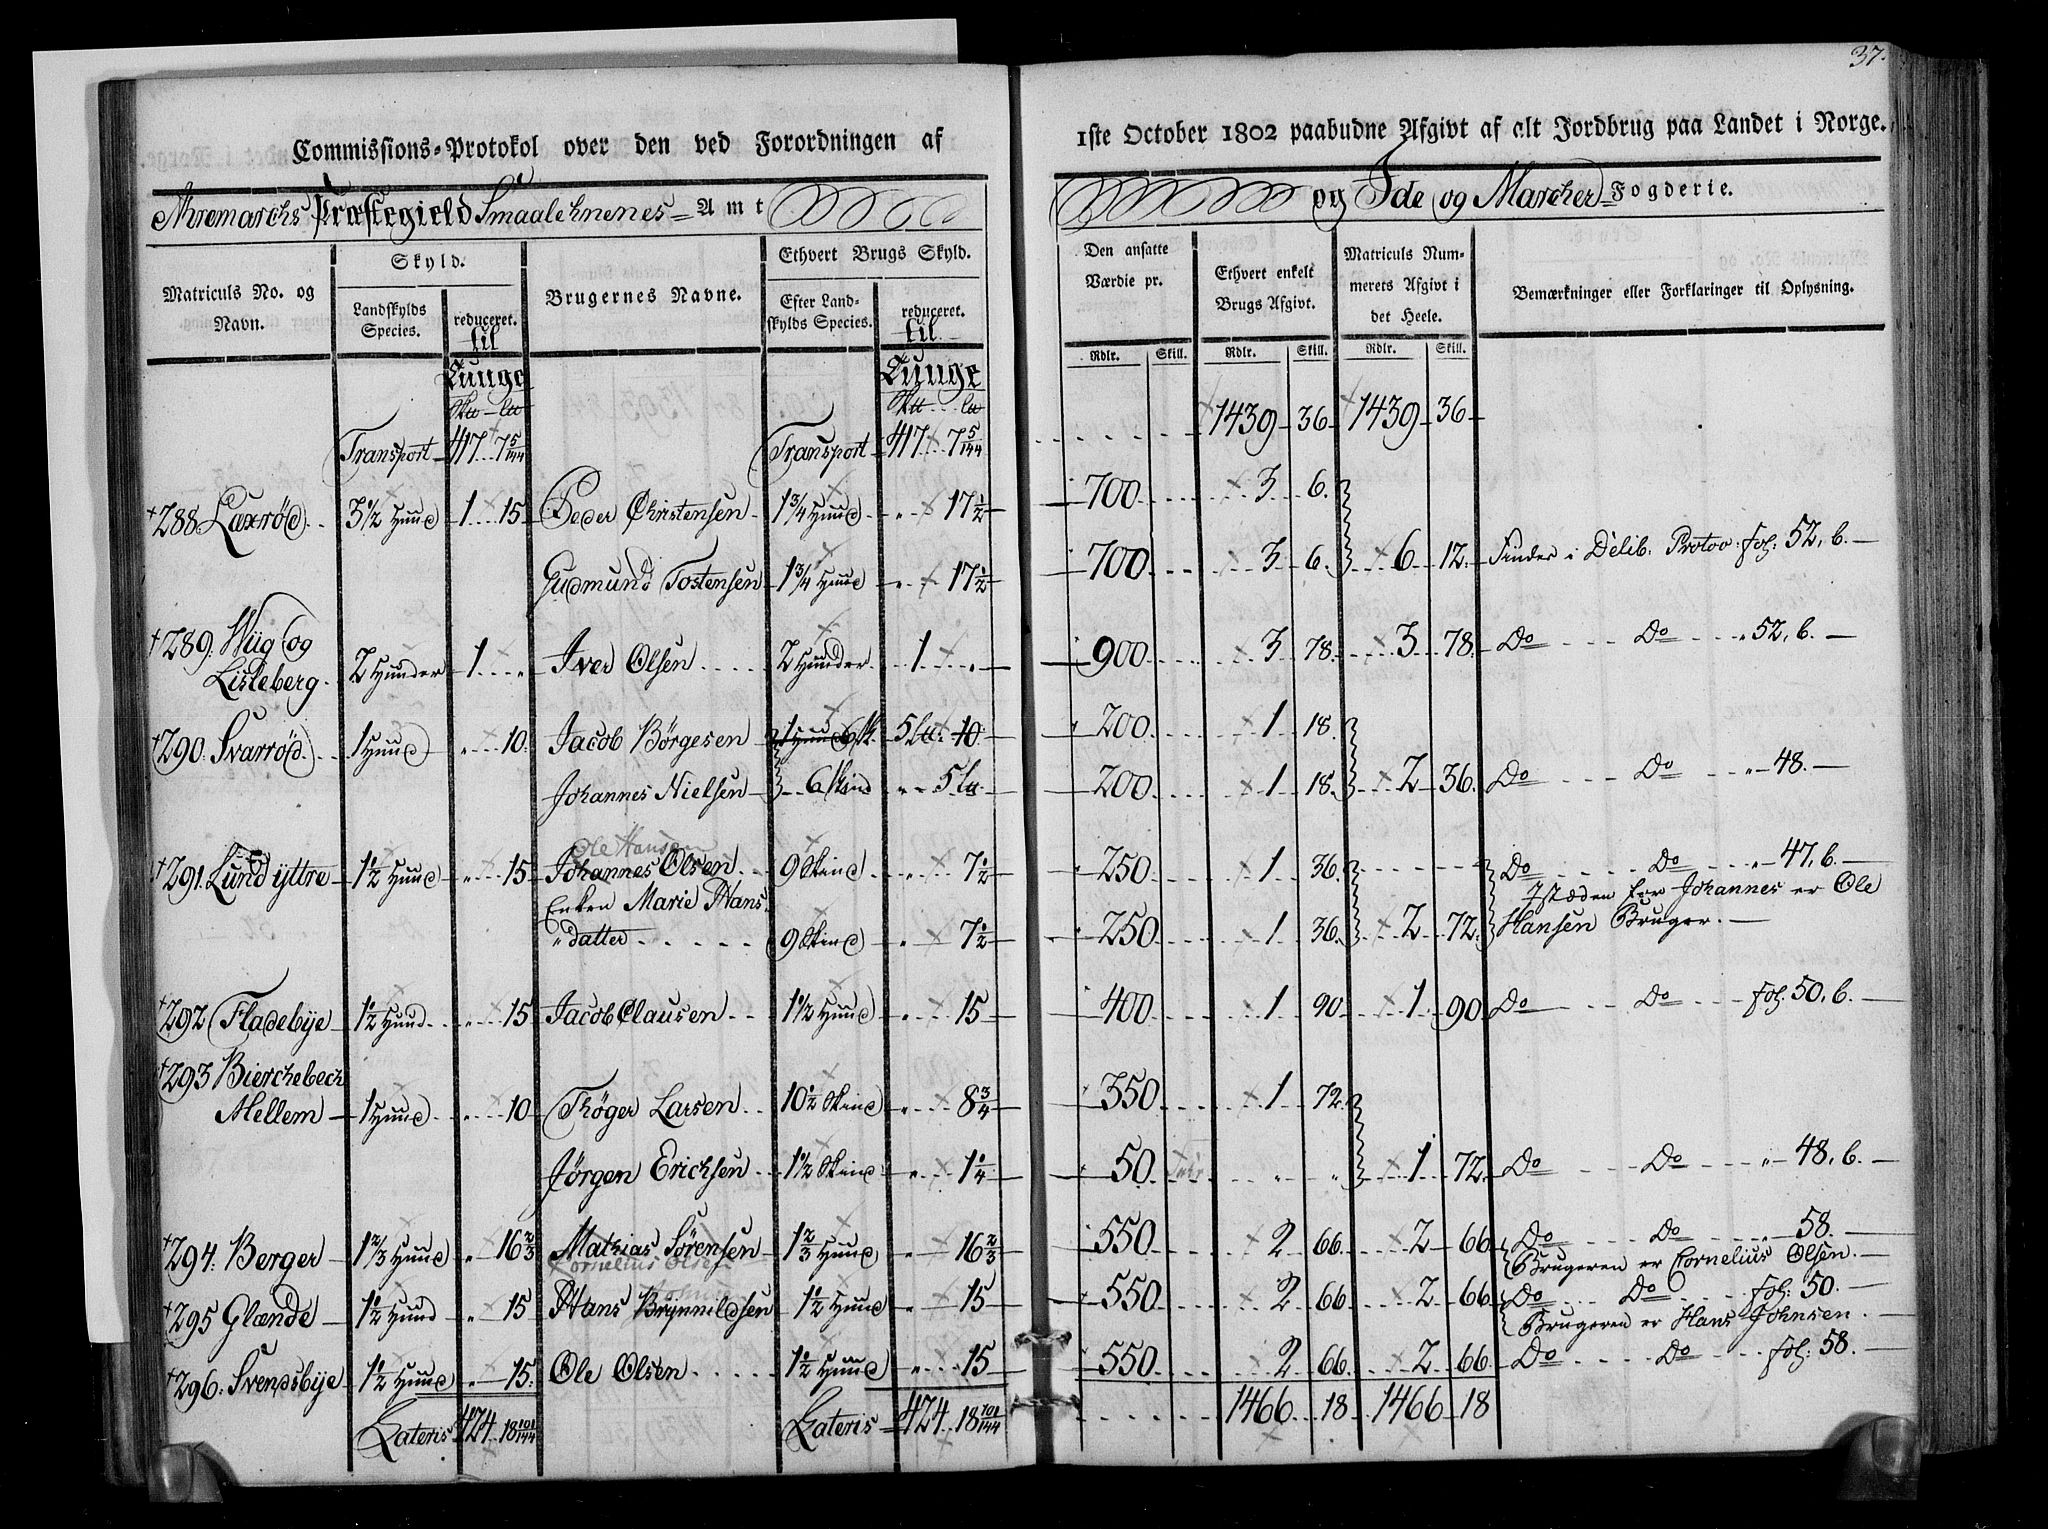 37.
Commissions-Protokol over den ved Forordningen af 1ste October 1802 paabudne Afgivt af alt Jordbrug paa Landet i Norge.
Aremarchs Præstegield Smaalehnenes Amt og Ide og Marcher Fogderie.
Matriculs No. og Navn. | Skyld. | Brugernes Navne. | Ethvert Brugs Skyld. | Den ansatte Værdie pr. | Ethvert enkelt Brugs Afgivt. | Matriculs Nummerets Afgivt i det Heele. | Bemærkninger eller Forklaringer til Oplysning.
Landskylds Species. | reduceret. til Tunge | Efter Landskylds Species. | reduceret. til Tunge
Rdlr. Skill. | Rdlr. Skill. | Rdlr. Skill.
Transport 417 7 5/144 | Transport 417 7 5/144 | 1439 36 | 1439 36
288. Laxrød 3 1/2 Hund 1 15 Peder Christensen 1 3/4 Hund " 17 1/2 | 700 | 3 6.
Gudmund Tostensen 1 3/4 Hund " 17 1/2 | 700 | 3 6. | 6 12. Findes i Delib. Protoc. fol: 52, b.
289. Wiig og Lisleberg 2 Hunder 1 " Iver Olsen 2 Hunder 1 " | 900 | 3 78. | 3 78. Do Do " 52, b.
290. Svarrød 1 Hund " 10. Jacob Børgesen 1 Hund 6 sk. 5 lu. 10. | 200 | 1 18.
Johannes Nielsen 6 Skind " 5 lu. | 200 | 1 18. | 2 36. Do Do " 48.
Ole Hansen
291. Lund yttre 1 1/2 Hund " 15 Johannes Olsen 9 Skind " 7 1/2 | 250 | 1 36. | Do Do " 47, b.
Enken Marie Hans | Istæden for Johannes er Ole
datter 9 Skind " 7 1/2 | 250 | 1 36. | 2 72. Hansen Bruger.
292 Fladebye 1 1/2 Hund " 15 Jacob Clausen 1 1/2 Hund " 15 | 400 | 1 90 | 1 90 Do Do fol. 50, b.
293 Bierchebech
Mellem 1 Hund " 10 Thøger Larsen 10 1/2 Skind " 8 3/4 | 350 | 1 72.
Jørgen Erichsen 1 1/2 Skind " 1 1/4 | 50 | " " | 1 72. Do Do " 48, b.
294. Berger 1 2/3 Hund " 16 2/3 Mathias Sørensen 1 2/3 Hund " 16 2/3 | 550 | 2 66. | 2 66 Do Do " 58.
Cornelius Olsen | Brugeren er Cornelius Olsen.
295 Glænde 1 1/2 Hund " 15 Hans Brynnildsen 1 1/2 Hund " 15 | 550 | 2 66 | 2 66 Do Do fol: 50.
Brugeren er Hans Johnsen.
296. Svendsbye 1 1/2 Hund " 15. Ole Olsen 1 1/2 Hund " 15 | 550 | 2 66. | 2 66. Do Do fol: 58.
Lateris 424 18 101/144 | Lateris 424 18 101/144 | 1466 18 | 1466 18